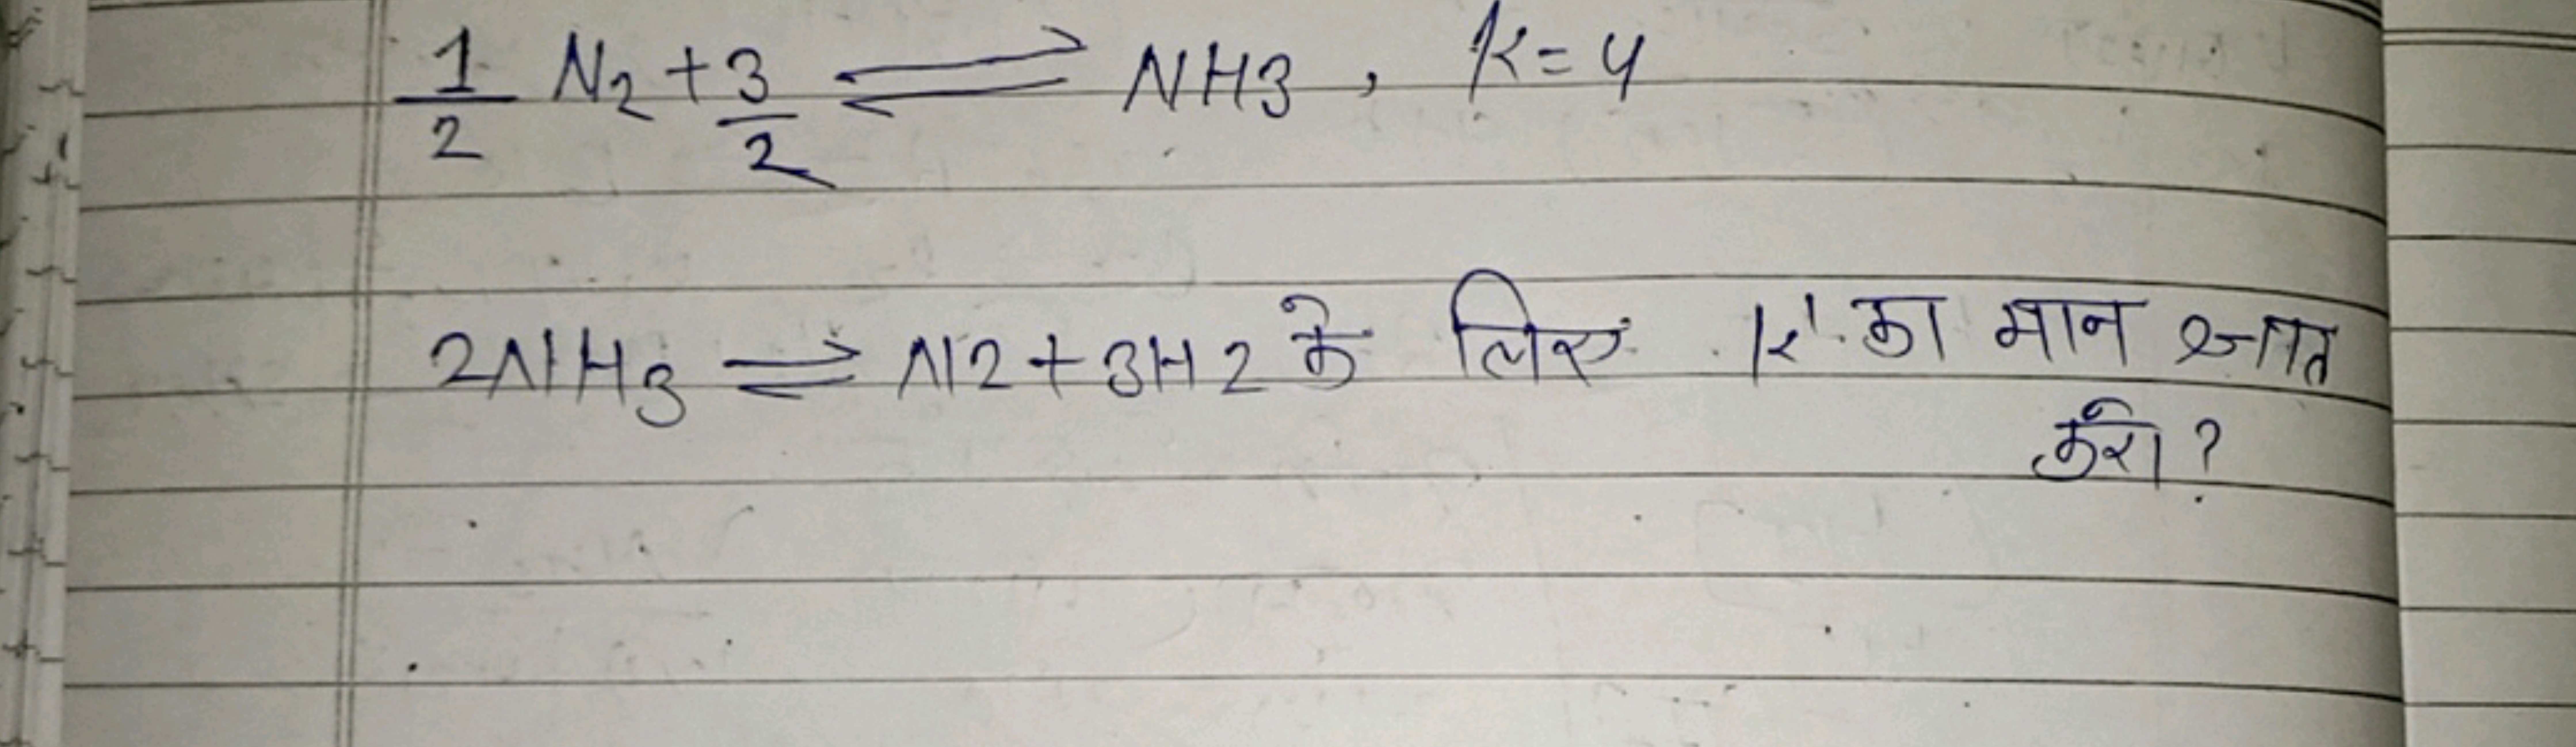 1/2 N2 + 3/2 ⇌ NH3, K=4
2NH3 ⇌ N2 + 3H2 के लिए K' का मान ज्ञात
करो?